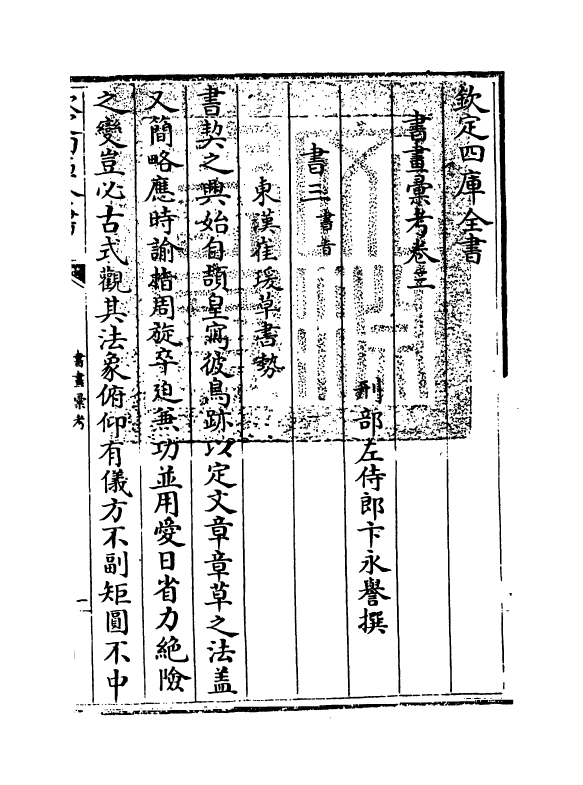 欽定四庫全書
書畫彙考卷三
刑部左侍郎卞永譽撰
書三書旨
東漢崔瑗草書勢
書契之興始自頡皇寫彼鳥跡以定文章章草之法蓋
又簡略應時諭指周旋卒迫兼功並用愛日省力絶險
之變豈必古式觀其法象俯仰有儀方不副矩圓不中
欽定四庫全書
書畫彙考
一